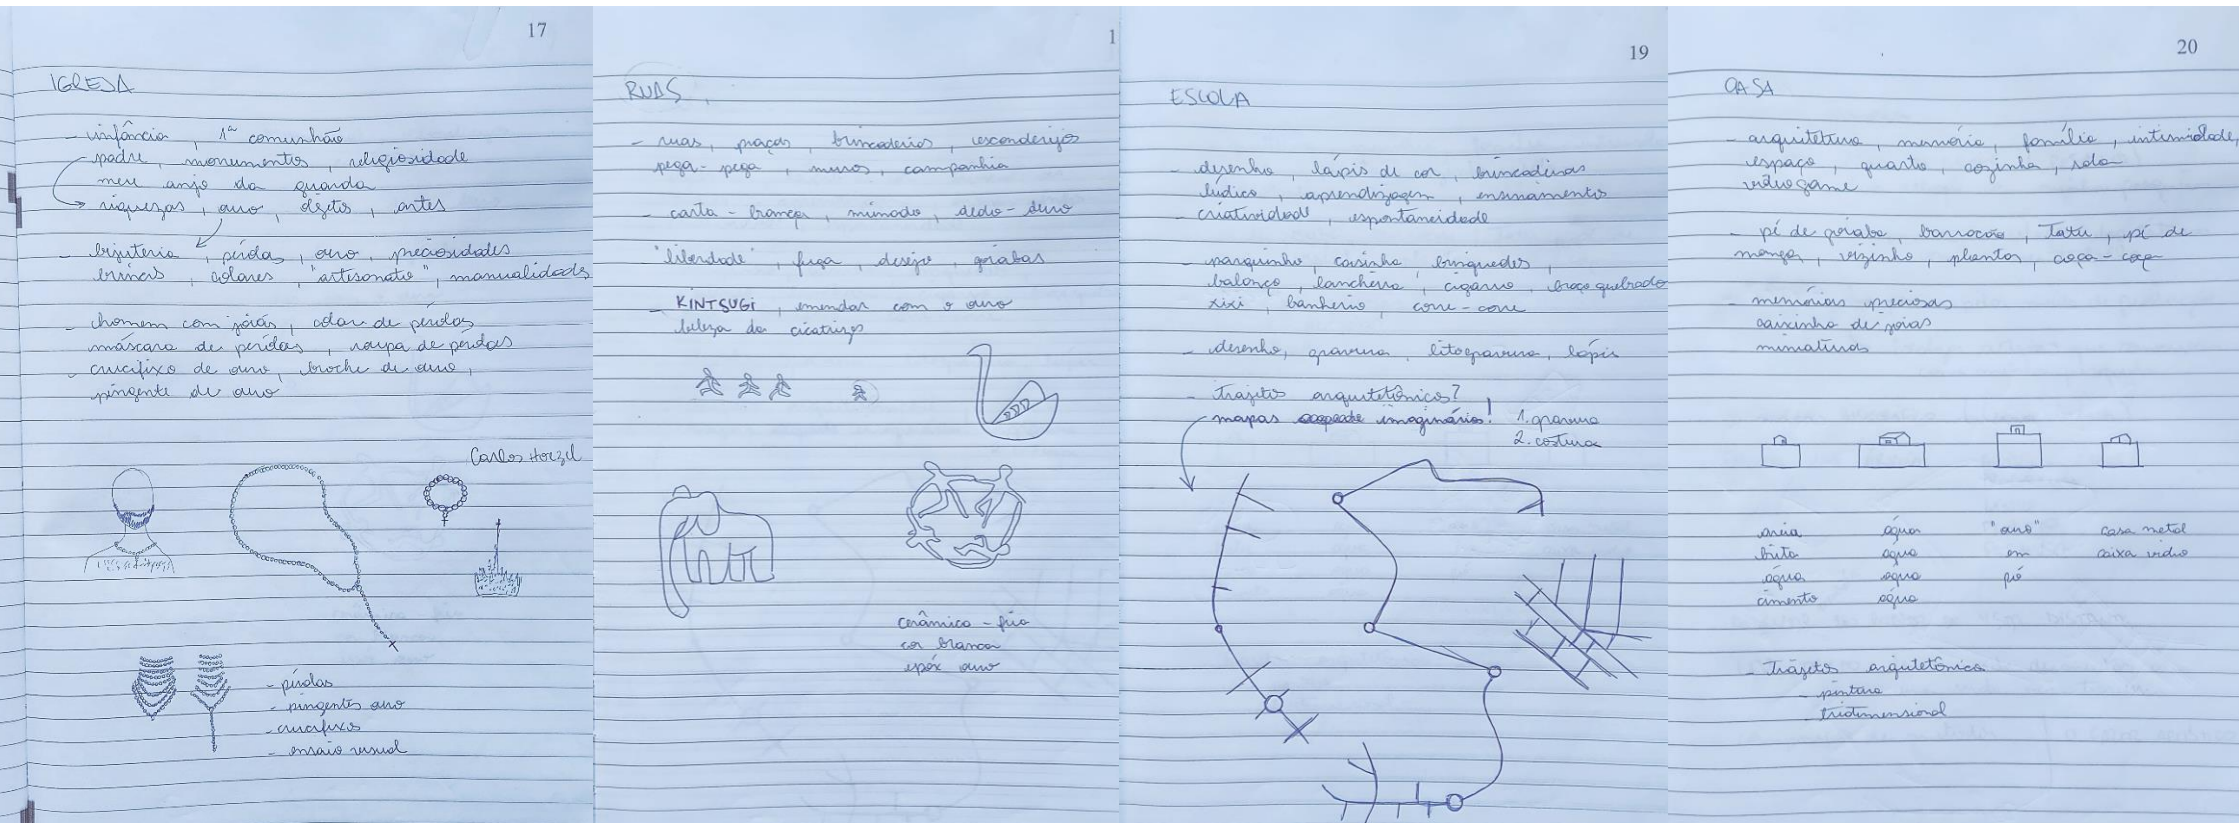 17
IGREJA
- infância, 1ª comunhão
padre, monumentos, religiosidade
meu anjo da guarda
riquezas, ouro, objetos, artes
- bijuteria, pérolas, ouro, preciosidades
brincos, colares, "artesanato", manualidades
- homem com jóias, colar de pérolas
máscara de pérolas, roupa de pérolas
- crucifixo de ouro, broche de ouro,
pingente de ouro
Carlos
- pérolas
- pingentes ouro
- crucifixos
- ensaio visual
1
RUAS
- ruas, praças, brincadeiras, esconderijos
pega-pega, muros, campanhia
- carta-branca, mimado, dedo-duro
"liberdade", fuga, desejo, goiabas
- KINTSUGI, emendar com o ouro
beleza da cicatrizes
cerâmica - fria
cor branca
epóx ouro
19
ESCOLA
- desenho, lápis de cor, brincadeiras
lúdico, aprendizagem, ensinamento
- criatividade, espontaneidade
- parquinho, casinha, brinquedos,
balanço, lancheira, cigarro, braço quebrado
xixi, banheiro, corre-corre
- desenho, gravura, litogravura, lápis
- Trajetos arquitetônicos?
- mapas imaginários!
1. gravura
2. costura
20
CASA
- arquitetura, memória, família, intimidade,
espaço, quarto, cozinha, sala
videogame
- pé de goiaba, barrocão, Tatu, pé de
manga, vizinho, plantas, coça-coça
- memórias preciosas
caixinha de joias
miniaturas
areia água "ouro" casa metal
brita água em caixa vidro
água água pó
cimento água
- Trajetos arquitetônico
- pintura
- tridimensional